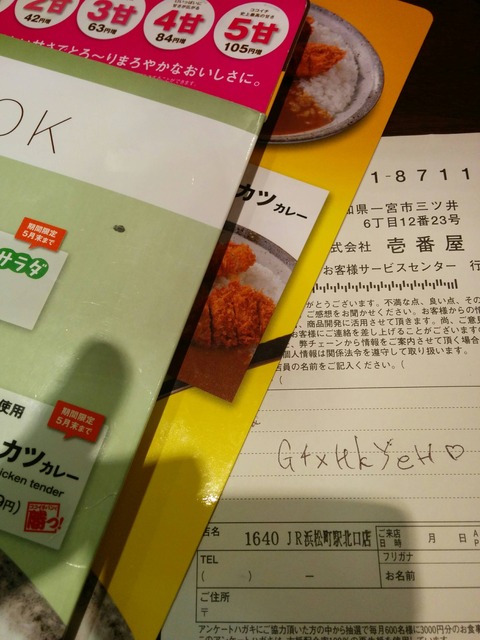 2甘
42円増
3甘
63円増
4甘
84円増
5甘
105円増
とろ～りまろやかなおいしさに。
OK
カツカレー
期間限定
5月末まで
サラダ
使用
期間限定
5月末まで
カツカレー
icken tender
9円)
勝つ!
1-8711
県一宮市三ツ井
6丁目12番23号
式会社 壱番屋
お客様サービスセンター 行
がとうございます。不満な点、良い点、その
ご感想をお聞かせください。お客様からの情
、商品開発に活用させて頂きます。尚、ご意見
お客様にご連絡を差し上げることがございますの
、弊チェーンから情報をご案内させて頂く場合
個人情報は関係法令を遵守して取り扱います。
店員の名前をご記入ください。(
(
店名
1640 JR浜松町駅北口店
ご来店
日時
月 日
TEL
( ) ―
フリガナ
お名前
ご住所
〒
アンケートハガキにご協力頂いた方の中から抽選で毎月600名様に3000円分のお食事